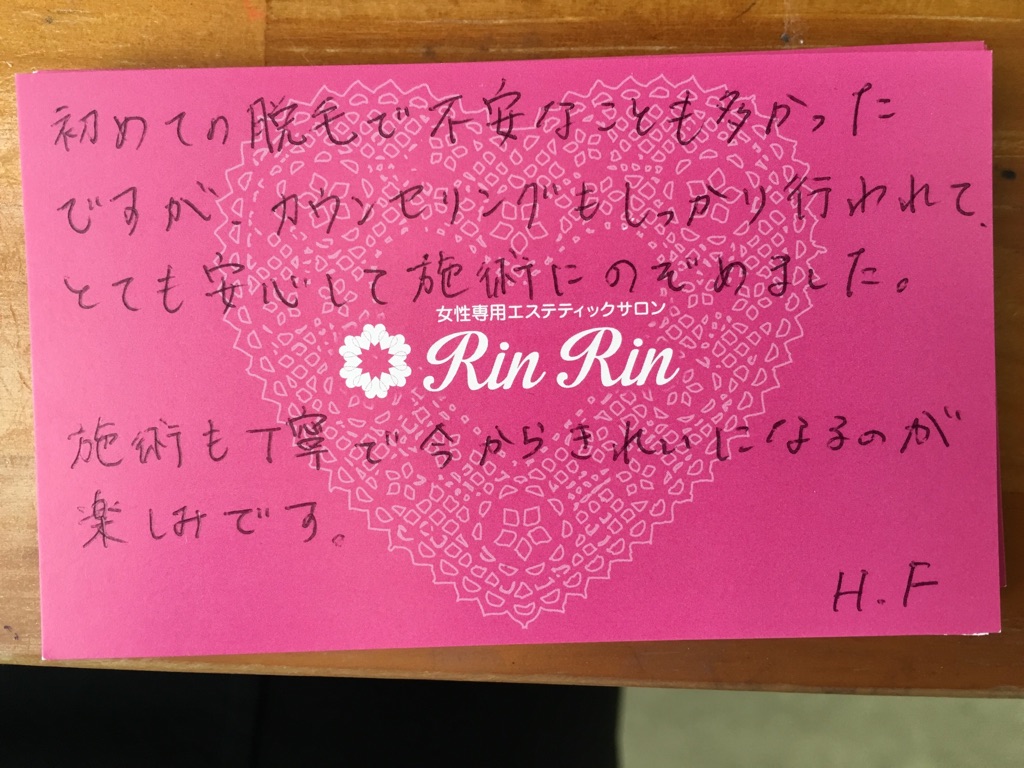 初めての脱毛で不安なことも多かった
ですが、カウンセリングもしっかり行われて、
とても安心して施術にのぞめました。
女性専用エステティックサロン
Rin Rin
施術も丁寧で今からきれいになるのが
楽しみです。
H.F